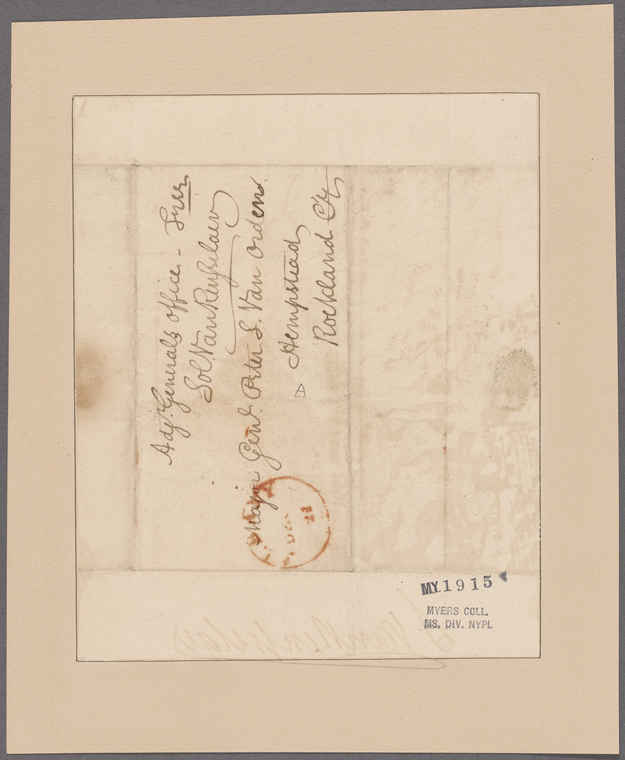 Adjt. Generals office - Free
Sol. Van Rensselaer
Major Genl. Peter S. Van Orden
Hempstead
Rockland Cty
DEC
21
MY.1915
MYERS COLL.
MS. DIV. NYPL